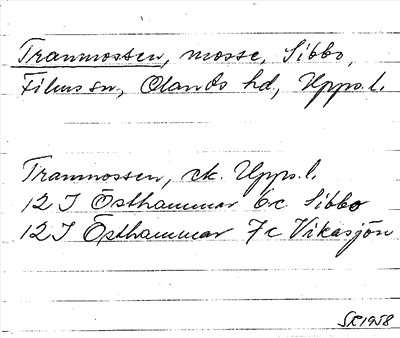 Tranmossen, mosse, Sibbo,
Films sn, Olands hd, Upps.l.
Tranmossen, ek. Upps.l.
12 I Östhammar 6c Sibbo
12 I Östhammar 7c Vikasjön